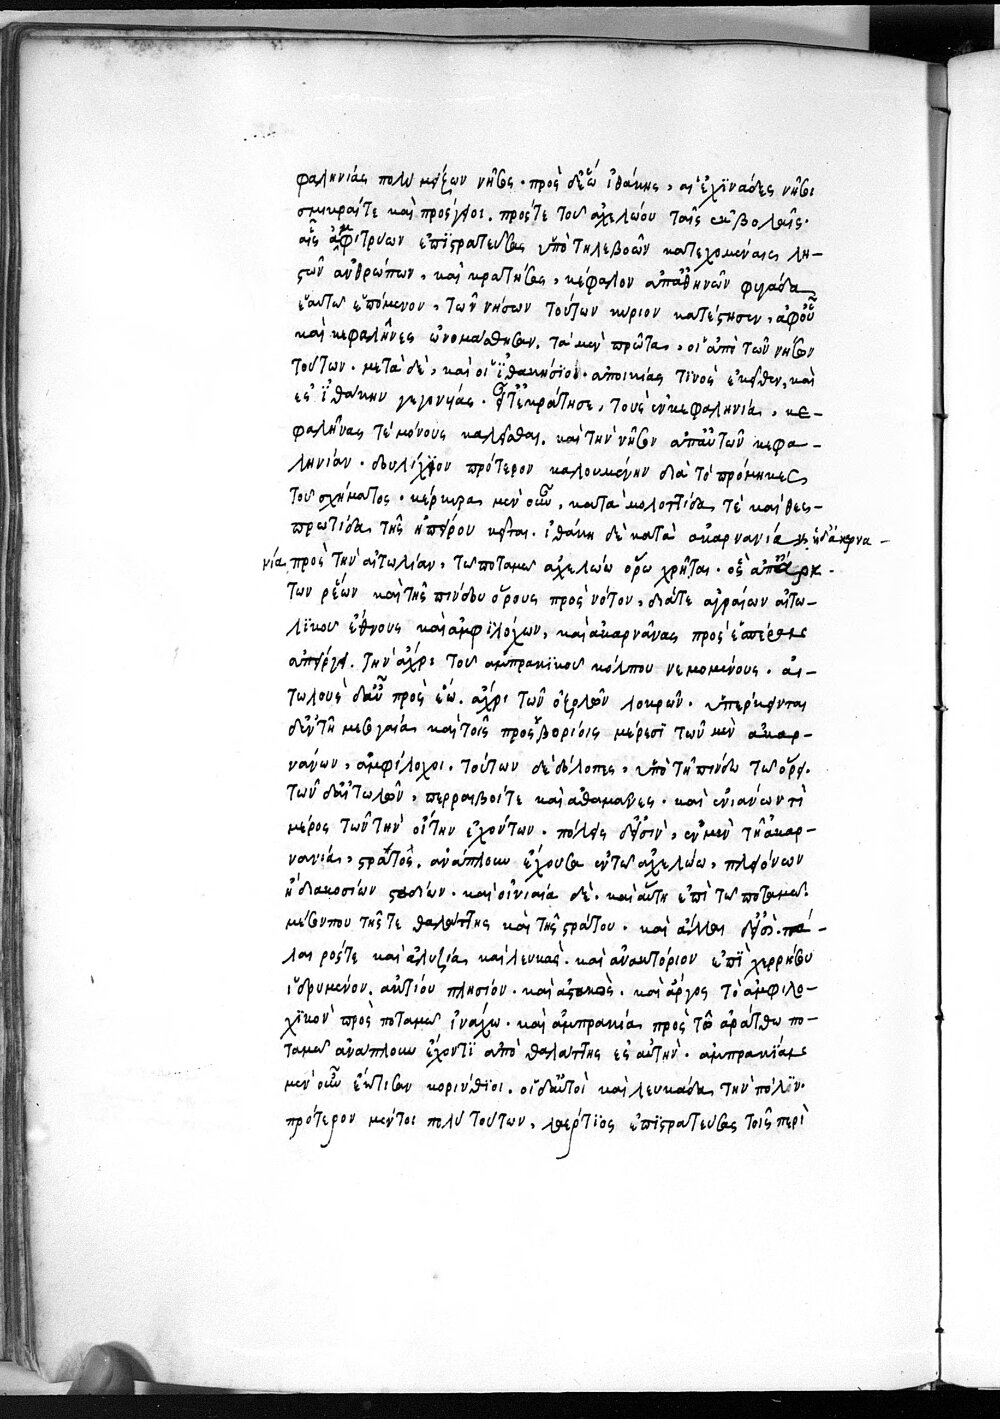 φαληνιάς πολυ μείζων νῆσος · πρὸς δ' ἕω ἰθάκης, αἱ ἐχϊνάδες νῆσοι
σμικραίτε καὶ πρόσγειοι, πρόςτε τοῦ ἀχελώου ταῖς ἐκβολαῖς·
αἷς ἀμφιτρύων ἐπϊστρατεύσας ὑπὸ τηλεβοῶν κατεχομέναις λη-
στῶν ἀνθρώπων, καὶ κρατήσας, κέφαλον ἀπαθηνῶν φυγάδα
ἑαυτῶ ἑπόμενον, τῶν νήσων τούτων κύριον κατέστησεν, ἀφοῦ
καὶ κεφαλῆνες ὠνομάσθησαν. τὰ μὲν πρῶτα, οἱ ἀπὸ τῶν νήσων
τούτων · μετὰ δὲ, καὶ οἱ ἰθακήσϊοι · ἀποικίας τϊνὸς ἐκεῖθεν, καὶ
ἐς ἰθάκην γεγονυίας · ὅτε ἐκράτησε, τοὺς ἐν κεφαληνία, κε-
φαλῆνας τὲ μόνους καλεῖσθαι. καὶ τὴν νῆσον ἀπαὐτῶν κεφα-
ληνίαν · δουλίχϊον πρότερον καλουμένην διὰ τὸ πρόμηκες
τοῦ σχήματος · κέρκυρα μὲν οὖν, κατὰ μολοττίδα τὲ καὶ θες-
πρωτίδα τῆς ἠπείρου κεῖται. ἰθάκη δὲ κατὰ ἀκαρνανία ἡ δ' ἀκρνα-
νία πρὸς τὴν αἰτωλίαν, τῶ ποταμῶ ἀχελώω ὅρω χρῆται. ὃς ἀπ' ἄρκ-
των ῥέων καὶ τῆς πίνδου ὄρους πρὸς νότον, διάτε ἀγραίων αἰτω-
λϊκοῦ ἔθνους καὶ ἀμφϊλόχων, καὶ ἀκαρνᾶνας πρὸς ἑσπέραμ
ἀπείργει. τὴν ἄχρι τοῦ ἀμπρακϊκοῦ κόλπου νεμομένους · αἰ-
τωλοὺς δαὖ πρὸς ἕω. ἄχρι τῶν ὀζολῶν λοκρῶν · ὑπέρκεινται
δ' ἐν τῆ μεσγαία καὶ τοῖς προσβορίοις μέρεσϊ τῶν μὲν ἀκαρ-
νάνων, ἀμφίλοχοι. τούτων δὲ δόλοπες, ὑπὸ τῆ πίνδω τῶ ὄρει.
τῶν δαἰτωλῶν, περραιβοίτε καὶ ἀθαμᾶνες · καὶ αἰνιάνων τὶ
μέρος τῶν τὴν οἴτην ἐχόντων · πόλεις δεἰσὶν, ἐν μὲν τῆ ἀκαρ-
νανία, στράτος. ἀνάπλουν ἔχουσα ἐν τῶ ἀχελώω, πλειόνων
ἢ διακοσίων σταδίων · καὶ οἰνιαία δὲ · καὶ αὕτη ἐπὶ τῶ ποταμῶ.
μέσνπου τῆςτε θαλάττης καὶ τῆς στράτου · καὶ ἄλλαι δεἰσὶ πό-
λαι ροςτε καὶ ἀλυζία, καὶ λευκὰς · καὶ ἀνακτόριον ἐπὶ χερρήσου
ἱδρυμένον. ἀκτίου πλησίον · καὶ ἀστακὸς · καὶ ἄργος τὸ ἀμφιλο-
χϊκὸν πρὸς ποταμῶ ἰνάχω · καὶ ἀμπρακία πρὸς τῶ ἀράτθω πο-
ταμῶ ἀνάπλουν ἔχοντϊ ἀπὸ θαλάττης ἐς αὐτὴν · ἀμπρακίαμ
μὲν οὖν ἔκτισαν κορίνθϊοι. οἱ δαὐτοὶ καὶ λευκάδα τὴν πόλϊν ·
πρότερον μέντοι πολὺ τούτων, λαέρτϊος ἐπϊστρατεύσας τοῖς περὶ